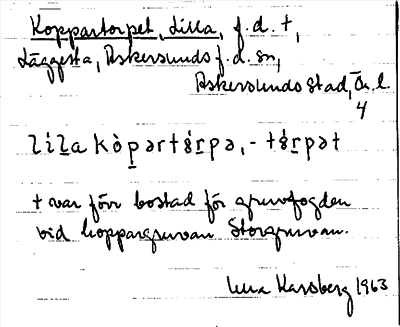 Koppartorpet, Lilla, f.d. t,
Läggesta, Askersunds f.d. sn,
Askersunds stad, Ör. l.
4
lila kòpərtórpə, - tórpət
t var förr bostad för gruvfogden
vid koppargruvan Storgruvan.
Karsberg 1963